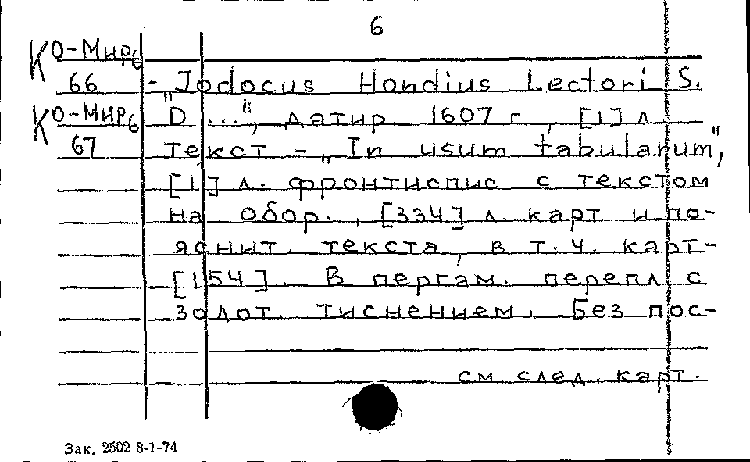 6
Ко-Мир6
66
- „Jodocus Hondius Lectori S.
Ко-Мир6
D ...", датир 1607 г., [1] л
67
текст - „In usum tabularum",
[1] л. фронтиспис с текстом
на обор., [334] л. карт и по-
яснит. текста, в т.ч. карт-
[154]. В пергам. перепл с
золот. тиснением. Без пос-
см след. карт.
Зак. 2502 8-1-74